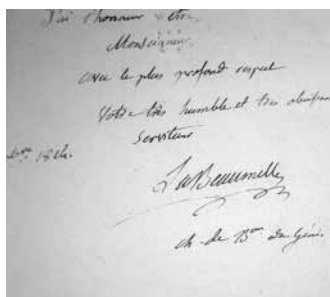 J'ai l'honneur d'être,
Monseigneur,
avec le plus profond respect
Votre très humble et très obéissant
Serviteur
1814.
LaBeaumelle
ch. de B.on du Génie